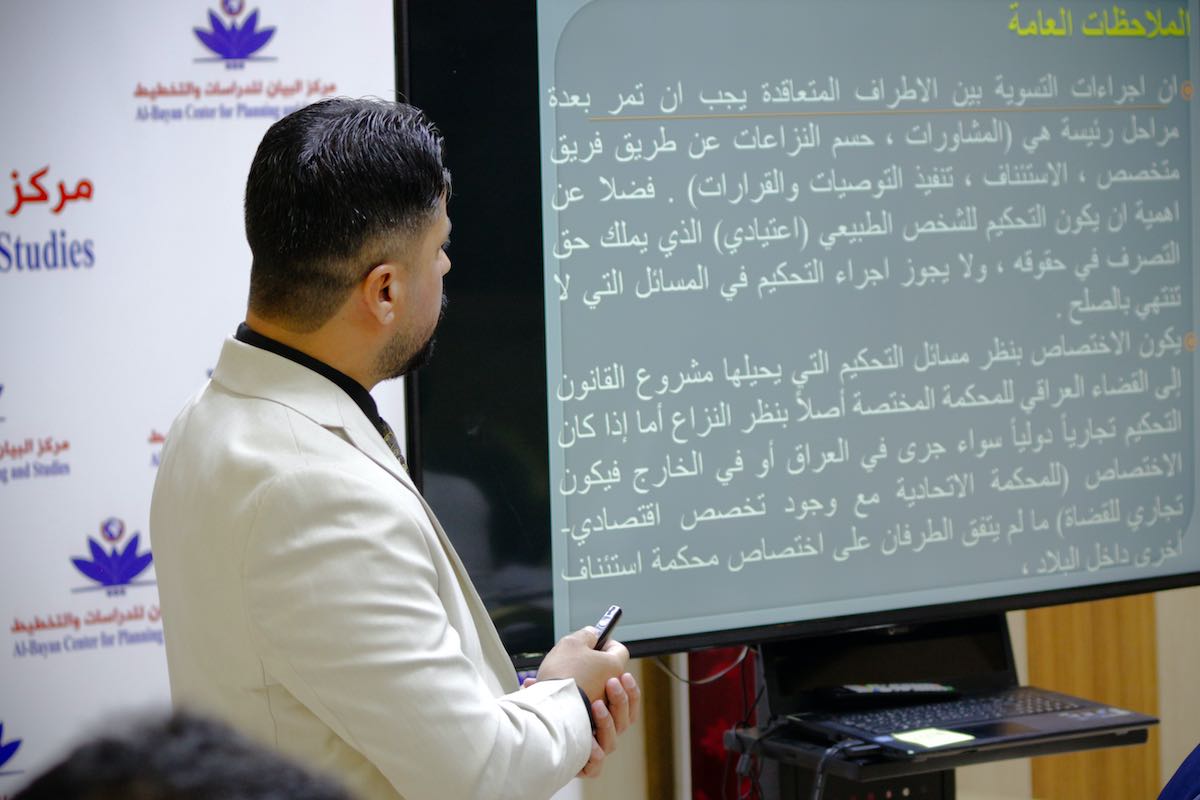 مركز البيان للدراسات والتخطيط
Al-Bayan Center for Planning
مركز
Studies
مركز البيان
ing and Studies
مركز البيان للدراسات والتخطيط
Al-Bayan Center for Planning
الملاحظات العامة
ان اجراءات التسوية بين الاطراف المتعاقدة يجب ان تمر بعدة
مراحل رئيسة هي (المشاورات ، حسم النزاعات عن طريق فريق
متخصص ، الاستئناف ، تنفيذ التوصيات والقرارات) . فضلا عن
اهمية ان يكون التحكيم للشخص الطبيعي (اعتيادي) الذي يملك حق
التصرف في حقوقه ، ولا يجوز اجراء التحكيم في المسائل التي لا
تنتهي بالصلح .
يكون الاختصاص بنظر مسائل التحكيم التي يحيلها مشروع القانون
إلى القضاء العراقي للمحكمة المختصة أصلاً بنظر النزاع أما إذا كان
التحكيم تجارياً دولياً سواء جرى في العراق أو في الخارج فيكون
الاختصاص (للمحكمة الاتحادية مع وجود تخصص اقتصادي-
تجاري للقضاة) ما لم يتفق الطرفان على اختصاص محكمة استئناف
أخرى داخل البلاد ،